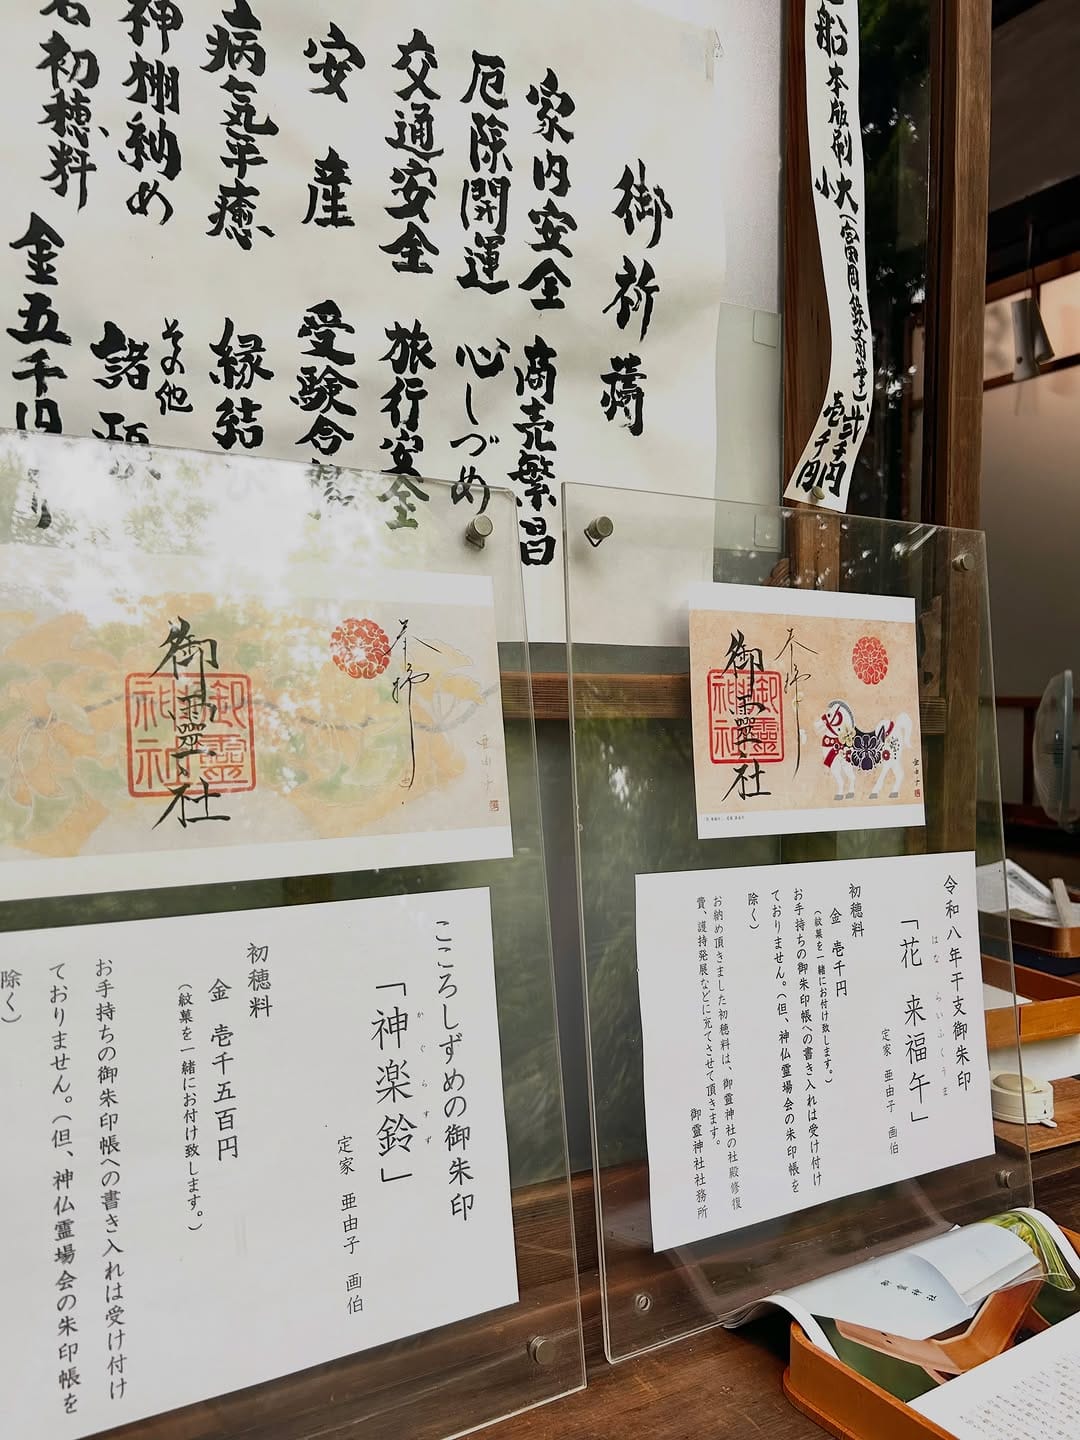 御祈祷
家内安全 商売繁昌
厄除開運 心しづめ
交通安全 旅行安全
安産 受験合
病気平癒 縁結
神棚納め その他 諸
初穂料 金五千円
り
船本版刷 大(富岡鉄斎筆)弐千円
小 壱千円
奉拝
御霊社
御靈神社
奉拝
御霊社
御靈神社
亜由子
令和八年干支御朱印
「花 来福午」
はな らいふくうま
定家 亜由子 画伯
初穂料
金 壱千円
(紋菓を一緒にお付け致します。)
お手持ちの御朱印帳への書き入れは受け付け
ておりません。(但、神仏霊場会の朱印帳を
除く)
お納め頂きました初穂料は、御霊神社の社殿修復
費、護持発展などに充てさせて頂きます。
御霊神社社務所
こころしずめの御朱印
「神楽鈴」
かぐらすず
定家 亜由子 画伯
初穂料
金 壱千五百円
(紋菓を一緒にお付け致します。)
お手持ちの御朱印帳への書き入れは受け付け
ておりません。(但、神仏霊場会の朱印帳を
除く)
御靈神社